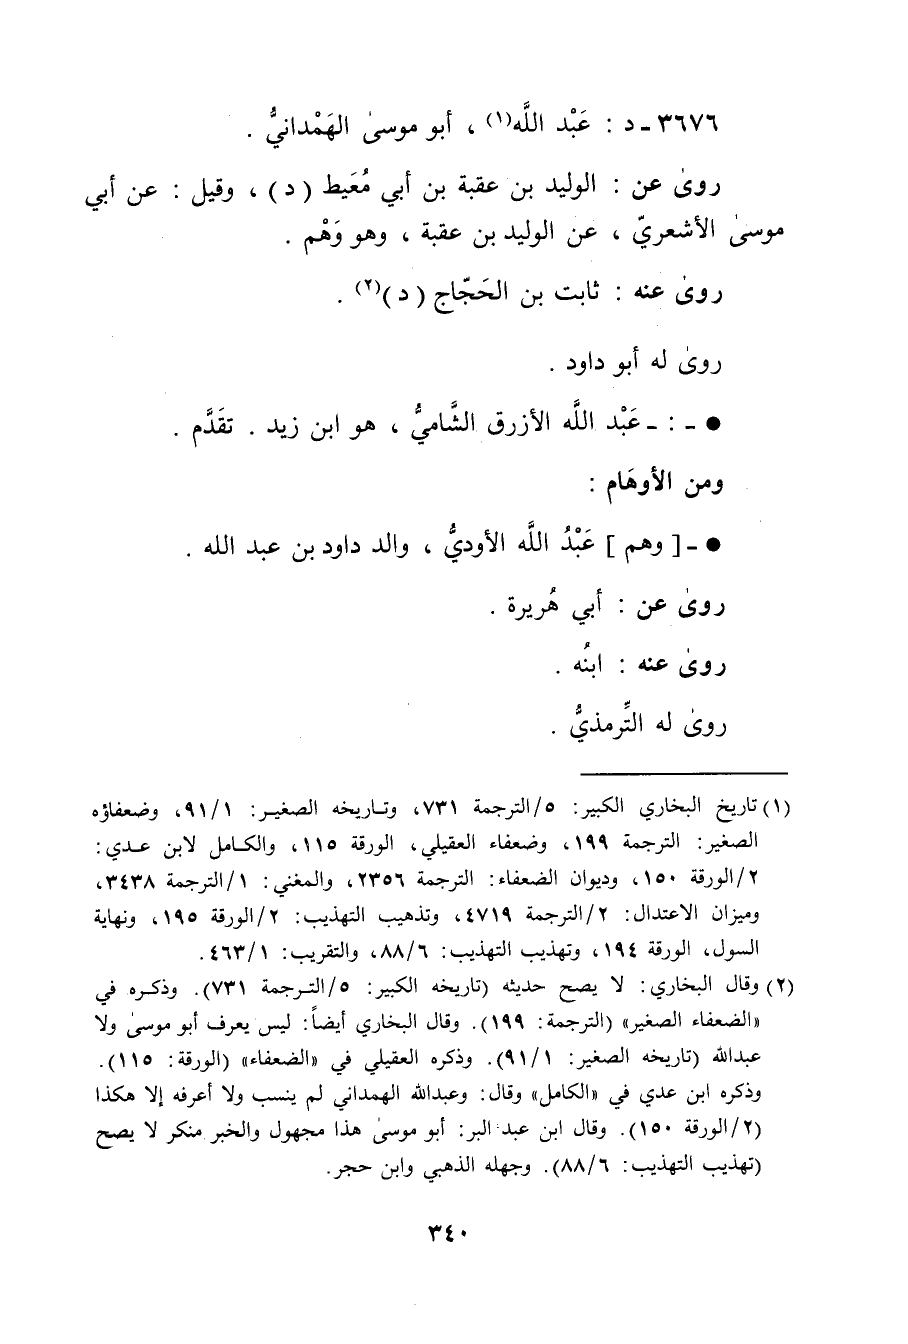 ٣٦٧٦ ـ د : عَبْد اللَّه(١) ، أبو موسىٰ الهَمْدانيُّ .
روىٰ عن : الوليد بن عقبة بن أبي مُعَيط ( د ) ، وقيل : عن أبي
موسىٰ الأشعريّ ، عن الوليد بن عقبة ، وهو وَهْم .
روىٰ عنه : ثابت بن الحَجّاج ( د )(٢) .
روىٰ له أبو داود .
● ـ : ـ عَبْد اللَّه الأزرق الشَّاميُّ ، هو ابن زيد . تقَدَّم .
ومن الأوهَام :
● ـ [ وهم ] عَبْدُ اللَّه الأوديُّ ، والد داود بن عبد الله .
روىٰ عن : أبي هُريرة .
روىٰ عنه : ابنُه .
روىٰ له التِّرمذيُّ .
(١) تاريخ البخاري الكبير: ٥/الترجمة ٧٣١، وتاريخه الصغير: ٩١/١، وضعفاؤه
الصغير: الترجمة ١٩٩، وضعفاء العقيلي، الورقة ١١٥، والكامل لابن عدي:
٢/الورقة ١٥٠، وديوان الضعفاء: الترجمة ٢٣٥٦، والمغني: ١/الترجمة ٣٤٣٨،
وميزان الاعتدال: ٢/الترجمة ٤٧١٩، وتذهيب التهذيب: ٢/الورقة ١٩٥، ونهاية
السول، الورقة ١٩٤، وتهذيب التهذيب: ٨٨/٦، والتقريب: ٤٦٣/١.
(٢) وقال البخاري: لا يصح حديثه (تاريخه الكبير: ٥/الترجمة ٧٣١). وذكره في
«الضعفاء الصغير» (الترجمة: ١٩٩). وقال البخاري أيضاً: ليس يعرف أبو موسىٰ ولا
عبدالله (تاريخه الصغير: ٩١/١). وذكره العقيلي في «الضعفاء» (الورقة: ١١٥).
وذكره ابن عدي في «الكامل» وقال: وعبدالله الهمداني لم ينسب ولا أعرفه إلا هكذا
(٢/الورقة ١٥٠). وقال ابن عبد البر: أبو موسىٰ هذا مجهول والخبر منكر لا يصح
(تهذيب التهذيب: ٨٨/٦). وجهله الذهبي وابن حجر.
٣٤٠